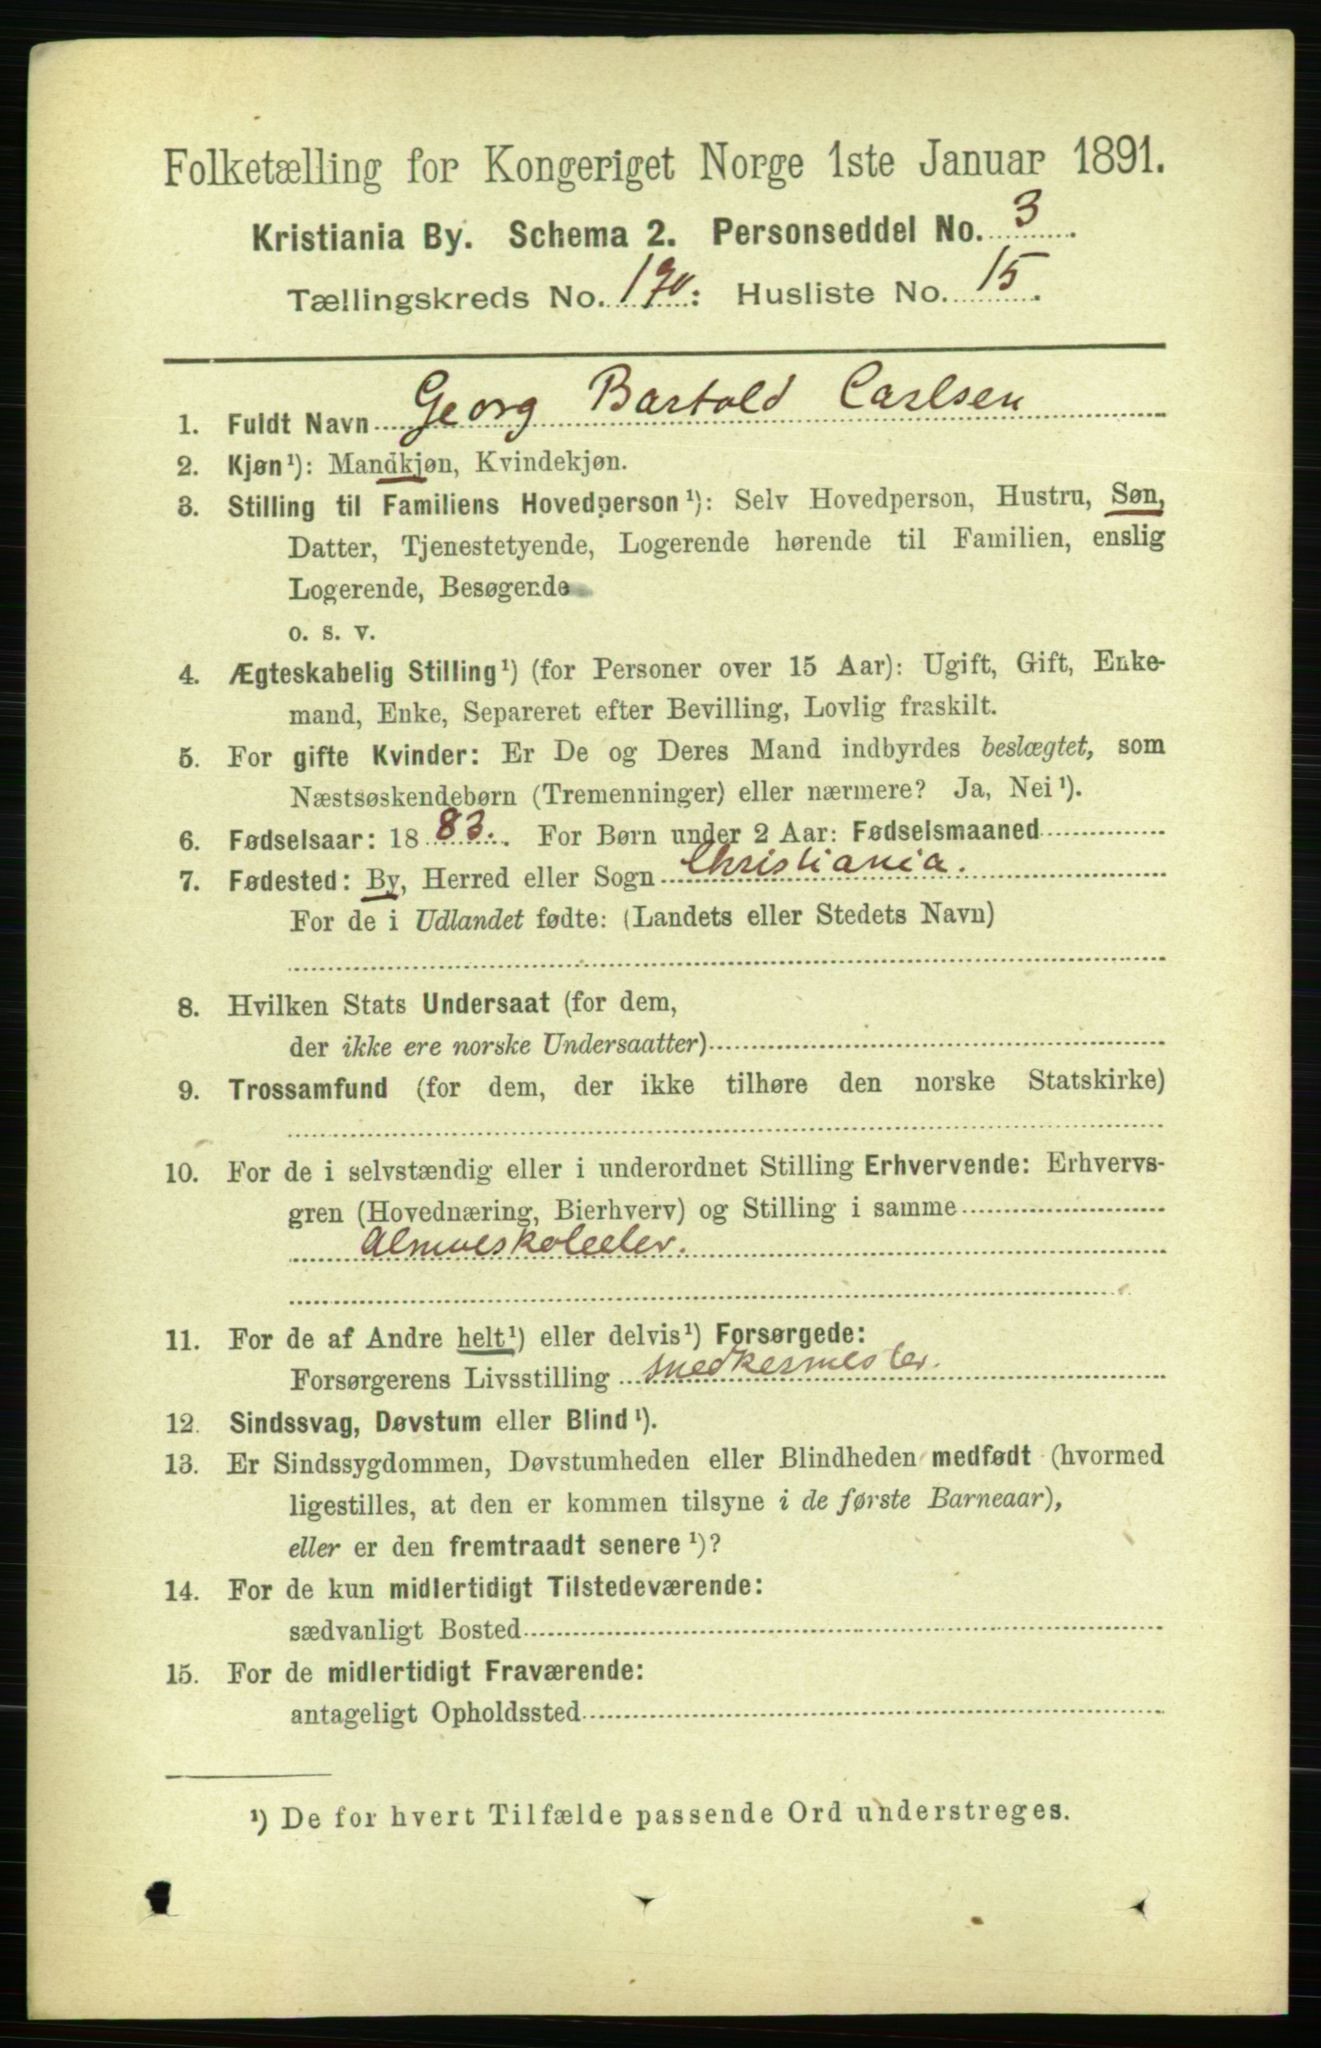 Folketælling for Kongeriget Norge 1ste Januar 1891.
Kristiania By. Schema 2. Personseddel No. 3.
Tællingskreds No. 170: Husliste No. 15.
1. Fuldt Navn Georg Bartold Carlsen
2. Kjøn¹): Mandkjøn, Kvindekjøn.
3. Stilling til Familiens Hovedperson¹): Selv Hovedperson, Hustru, Søn,
Datter, Tjenestetyende, Logerende hørende til Familien, enslig
Logerende, Besøgende
o. s. v.
4. Ægteskabelig Stilling¹) (for Personer over 15 Aar): Ugift, Gift, Enke-
mand, Enke, Separeret efter Bevilling, Lovlig fraskilt.
5. For gifte Kvinder: Er De og Deres Mand indbyrdes beslægtet, som
Næstsøskendebørn (Tremenninger) eller nærmere? Ja, Nei¹).
6. Fødselsaar: 1883. For Børn under 2 Aar: Fødselsmaaned
7. Fødested: By, Herred eller Sogn Christiania.
For de i Udlandet fødte: (Landets eller Stedets Navn)
8. Hvilken Stats Undersaat (for dem,
der ikke ere norske Undersaatter)
9. Trossamfund (for dem, der ikke tilhøre den norske Statskirke)
10. For de i selvstændig eller i underordnet Stilling Erhvervende: Erhvervs-
gren (Hovednæring, Bierhverv) og Stilling i samme
Almueskoleelev.
11. For de af Andre helt¹) eller delvis¹) Forsørgede:
Forsørgerens Livsstilling snedkermester.
12. Sindssvag, Døvstum eller Blind¹).
13. Er Sindssygdommen, Døvstumheden eller Blindheden medfødt (hvormed
ligestilles, at den er kommen tilsyne i de første Barneaar),
eller er den fremtraadt senere¹)?
14. For de kun midlertidigt Tilstedeværende:
sædvanligt Bosted
15. For de midlertidigt Fraværende:
antageligt Opholdssted
¹) De for hvert Tilfælde passende Ord understreges.